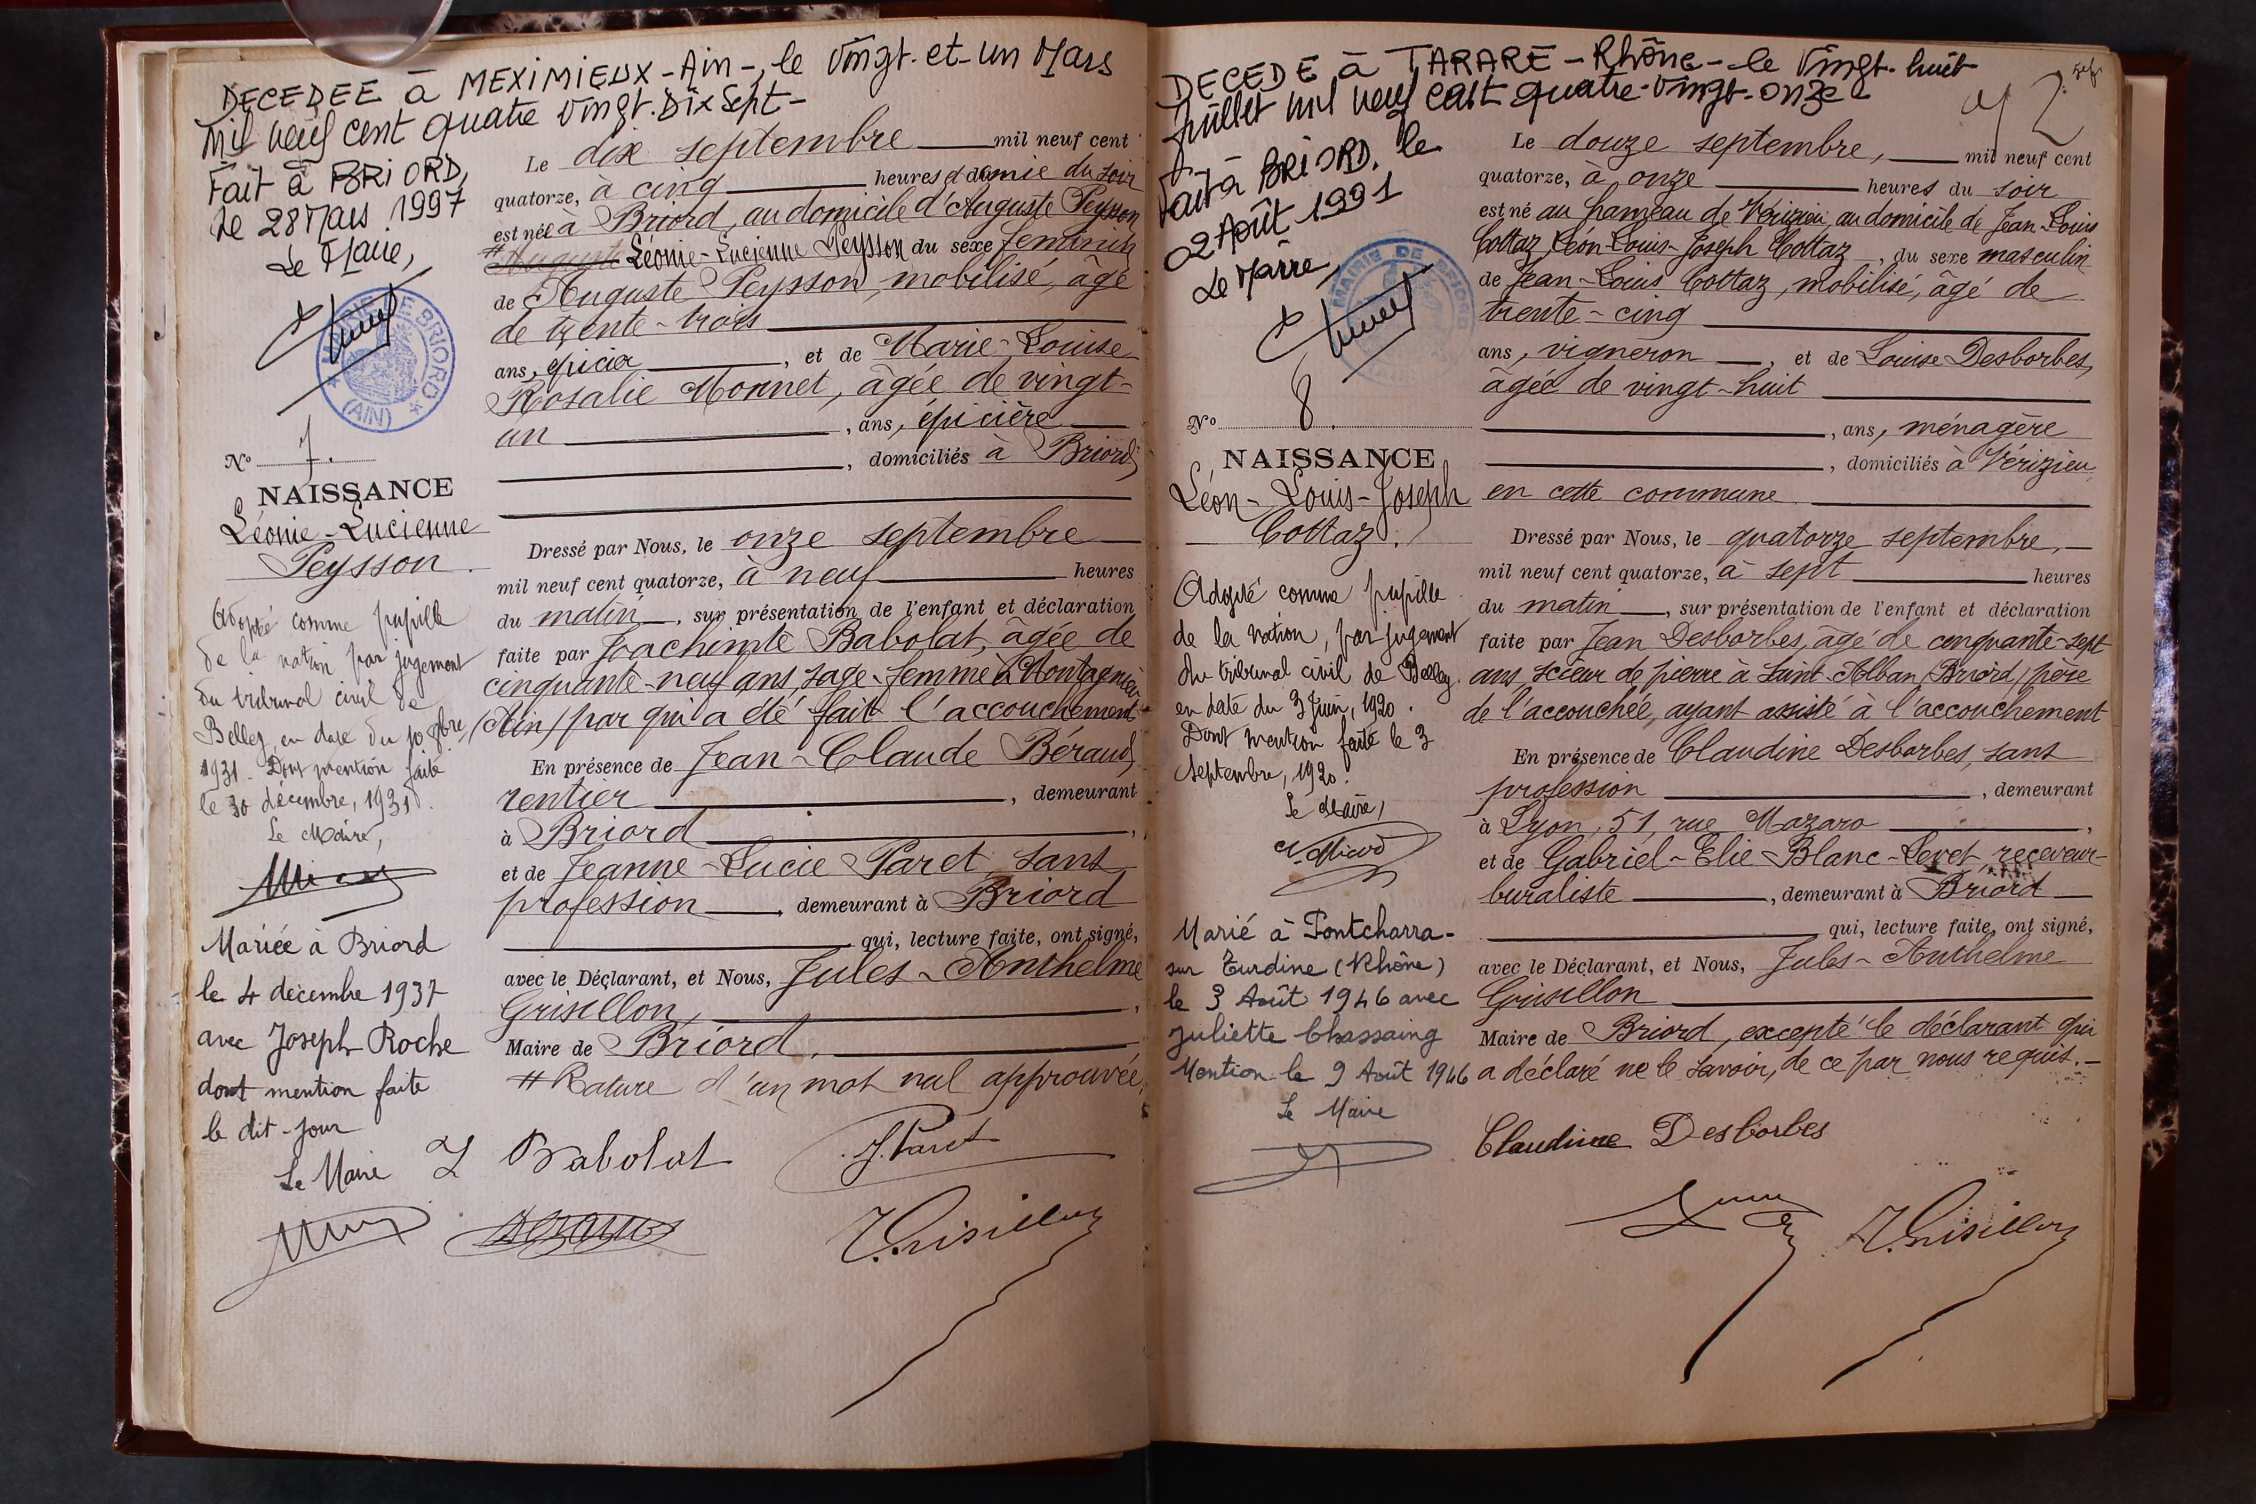 DECEDEE à MEXIMIEUX - Ain -, le Vingt-et-un Mars
mil neuf cent quatre Vingt-Dix Sept -
Fait à BRIORD,
Le 28 Mars 1997
Le Maire,
MAIRIE DE BRIORD
(AIN)
N° 7.
NAISSANCE
Léonie-Lucienne
Peysson.
Adopté comme pupille
de la nation par jugement
du tribunal civil de
Belley en date du 10 9bre
1931. Dont mention faite
le 30 décembre, 1931.
Le Maire,
Mariée à Briord
le 4 décembre 1937
avec Joseph Roche
dont mention faite
le dit-jour
Le Maire
Le dix septembre mil neuf cent
quatorze, à cinq heures et demie du soir
est née à Briord, au domicile d'Auguste Peysson
# Auguste Léonie-Lucienne Peysson du sexe féminin
de Auguste Peysson, mobilisé, âgé
de trente-trois
ans, épicier, et de Marie-Louise
Rosalie Monnet, âgée de vingt-
un, ans, épicière
, domiciliés à Briord,
Dressé par Nous, le onze septembre
mil neuf cent quatorze, à neuf heures
du matin, sur présentation de l'enfant et déclaration
faite par Joachimte Babolat, âgée de
cinquante-neuf ans, sage-femme à Montagnieu
(Ain) par qui a été fait l'accouchement
En présence de Jean-Claude Béraud,
rentier, demeurant
à Briord,
et de Jeanne-Lucie Paret sans
profession, demeurant à Briord
qui, lecture faite, ont signé,
avec le Déclarant, et Nous, Jules-Anthelme
Grisillon,
Maire de Briord.
# Rature d'un mot nul approuvée,
Babolat
J. Paret
J. Grisillon
DECEDE à TARARE - Rhône - le Vingt-huit
juillet mil neuf cent quatre-Vingt-onze
Fait à BRIORD, le
02 Août 1991
Le Maire,
MAIRIE DE BRIORD
N° 8.
NAISSANCE
Léon-Louis-Joseph
Cottaz.
Adopté comme pupille
de la nation, par jugement
du tribunal civil de Belley
en date du 3 Juin, 1920.
Dont mention faite le 3
Septembre, 1920.
Le Maire,
Marié à Pontcharra-
sur Turdine (Rhône)
le 3 Août 1946 avec
Juliette Chassaing
Mention le 9 Août 1946
Le Maire
Le douze septembre, mil neuf cent
quatorze, à onze heures du soir
est né au hameau de Vérizieu au domicile de Jean-Louis
Cottaz Léon-Louis-Joseph Cottaz, du sexe masculin
de Jean-Louis Cottaz, mobilisé, âgé de
trente-cinq
ans, vigneron, et de Louise Desborbes,
âgée de vingt-huit
, ans, ménagère
, domiciliés à Vérizieu,
en cette commune
Dressé par Nous, le quatorze septembre,
mil neuf cent quatorze, à sept heures
du matin, sur présentation de l'enfant et déclaration
faite par Jean Desborbes, âgé de cinquante-sept
ans, scieur de pierre à Saint-Alban (Briord) père
de l'accouchée, ayant assisté à l'accouchement
En présence de Claudine Desborbes, sans
profession, demeurant
à Lyon, 51, rue Mazaro,
et de Gabriel-Elie Blanc-Levet, receveur-
buraliste, demeurant à Briord
qui, lecture faite, ont signé,
avec le Déclarant, et Nous, Jules-Anthelme
Grisillon
Maire de Briord, excepté le déclarant qui
a déclaré ne le savoir, de ce par nous requis.
Claudine Desborbes
J. Grisillon